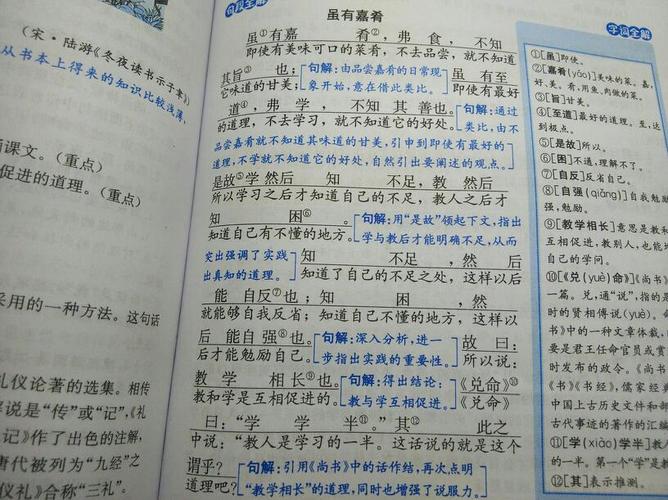 (宋·陆游《冬夜读书示子聿》)
从书本上得来的知识比较浅薄,
课文。(重点)
促进的道理。(重点)
采用的一种方法。这句话
礼仪论著的选集。相传
说是“传”或“记”,《礼
记》作了出色的注解,
唐代被列为“九经”之
仪礼》合称“三礼”。
句段全解
虽有嘉肴
虽①有嘉 肴②,弗 食,不知
即使有美味可口的菜肴,不去品尝,就不知道
其旨③ 也;[句解:由品尝嘉肴的日常现 虽 有至
它味道的甘美;象开始,意在借此类比。] 即使有最好
道④,弗 学, 不知 其 善也。[句解:通过
的道理,不去学习,就不知道它的好处。类比,由不
品尝嘉肴就不知道其味道的甘美,引申到即使有最好的
道理,不学就不知道它的好处,自然引出要阐述的观点。]
是故⑤学 然后 知 不足,教 然后
所以学习之后才知道自己的不足,教人之后才
知 困⑥ 。[句解:用“是故”领起下文,指出
知道自己有不懂的地方。学与教后才能明确不足,从而
突出强调了实践 知 不足,然 后
出真知的道理。] 知道了自己的不足之处,这样以后
能 自反⑦也;知 困 ,然
就能够自我反省;知道自己不懂的地方,这样以
后 能自强⑧也。[句解:深入分析,进一 故 曰:
后才能勉励自己。步指出实践的重要性。] 所以说:
教 学 相长⑨也。[句解:得出结论: 《兑命》⑩
教和学是互相促进的。教与学互相促进。] 《兑命》
曰:“学 学 半⑪。”其⑫ 此之
中说:“教人是学习的一半。这话说的就是这个
谓乎?[句解:引用《尚书》中的话作结,再次点明
道理吧?“教学相长”的道理,同时也增强了说服力。]
字词全解
①[虽]即使。
②[嘉肴(yáo)]美味的菜。嘉,
好、美。肴,用鱼、肉做的菜。
③[旨]甘美。
④[至道]最好的道理。至,达
到极点。
⑤[是故]所以。
⑥[困]不通,理解不了。
⑦[自反]反省自己。
⑧[自强(qiǎng)]自我
强,勉励。
⑨[教学相长]意思是教和
互相促进,教别人,也能增
自己的学问。
⑩[《兑(yuè)命》]《尚书
一篇。兑,通“说”,指的是
时的贤相傅说(yuè)。命
书》中的一种文章体裁,
要是君王任命官员或赏
时发布的政令。《尚书》
《书》《书经》,儒家经
中国上古历史文件和部
古代事迹的著作的汇编
⑪[学(xiào)学半]教人
半。第一个“学”是教
⑫[其]表示推测。